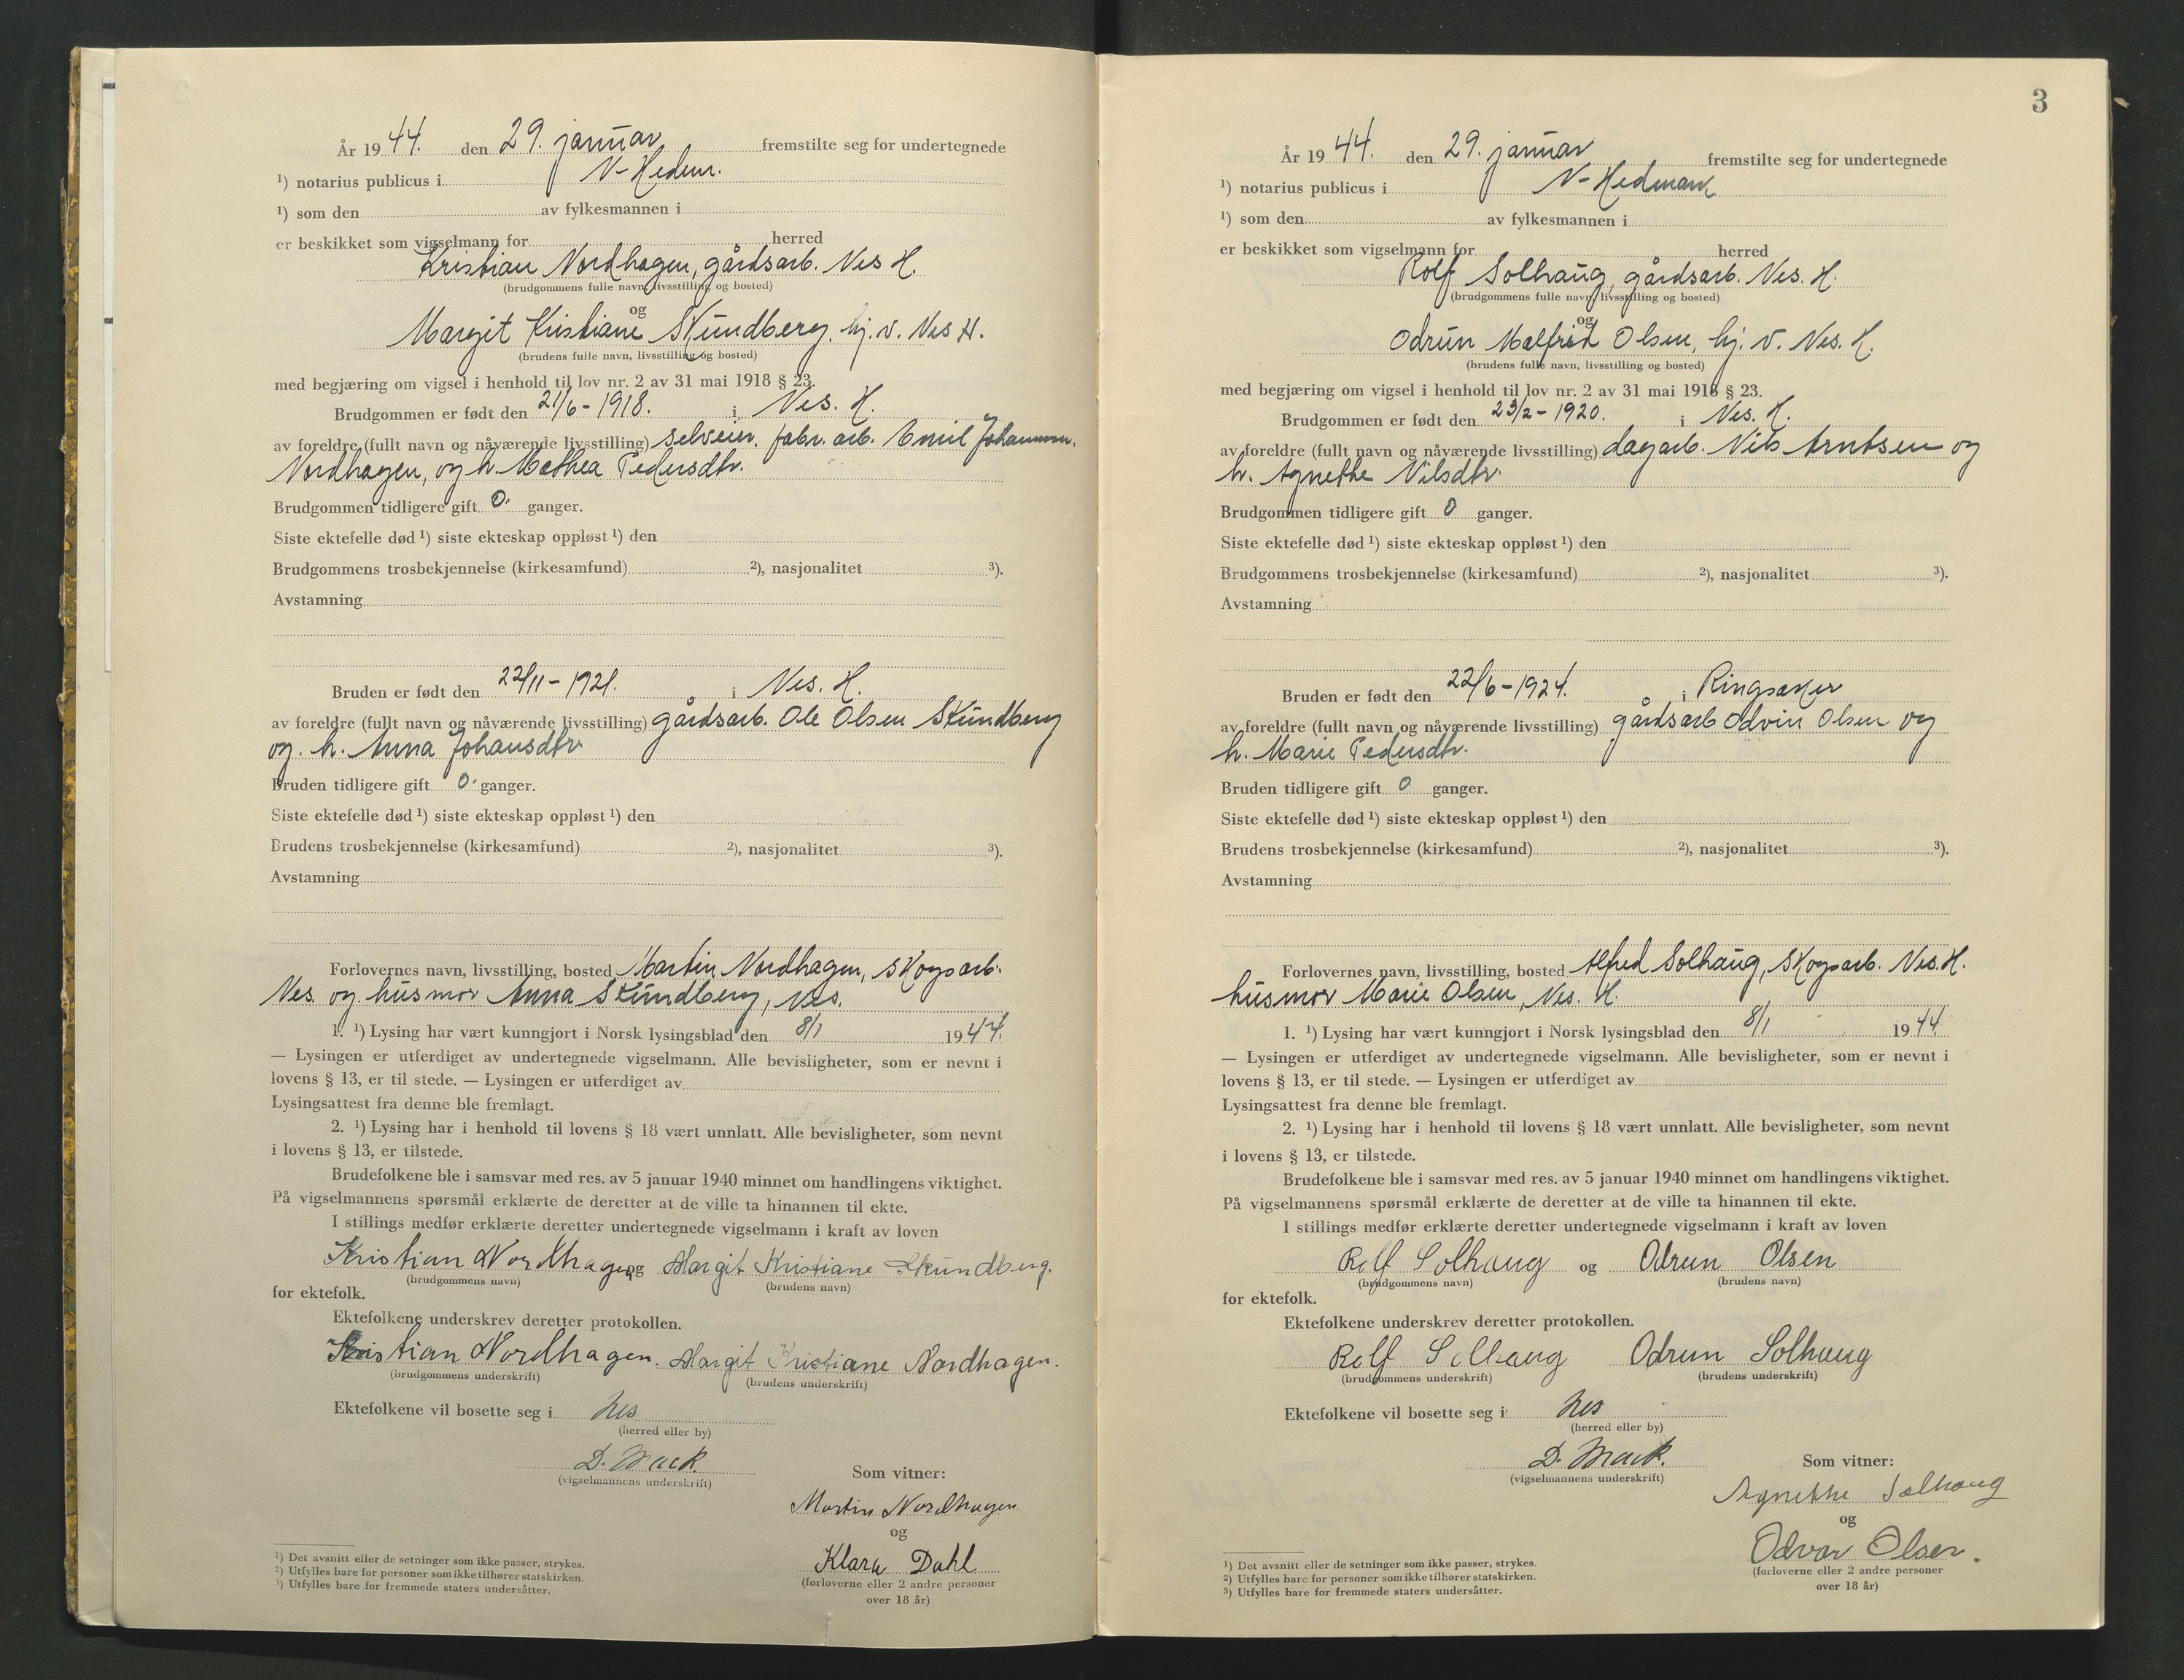 År 1944. den 29. januar fremstilte seg for undertegnede
¹) notarius publicus i N-Hedm.
¹) som den av fylkesmannen i
er beskikket som vigselmann for herred
Kristian Nordhagen, gårdsarb. Nes H.
(brudgommens fulle navn, livsstilling og bosted)
og
Margit Kristiane Skundberg, hj. v. Nes H.
(brudens fulle navn, livsstilling og bosted)
med begjæring om vigsel i henhold til lov nr. 2 av 31 mai 1918 § 23.
Brudgommen er født den 21/6-1918. i Nes. H.
av foreldre (fullt navn og nåværende livsstilling) selveier, fabr. arb. Emil Johannsen.
Nordhagen, og h. Mathea Pedersdtr.
Brudgommen tidligere gift 0. ganger.
Siste ektefelle død ¹) siste ekteskap oppløst ¹) den
Brudgommens trosbekjennelse (kirkesamfund) ²), nasjonalitet ³).
Avstamning
Bruden er født den 22/11-1921. i Nes. H.
av foreldre (fullt navn og nåværende livsstilling) gårdsarb. Ole Olsen Skundberg
og. h. Anna Johansdtr.
Bruden tidligere gift 0. ganger.
Siste ektefelle død ¹) siste ekteskap oppløst ¹) den
Brudens trosbekjennelse (kirkesamfund) ²), nasjonalitet ³).
Avstamning
Forlovernes navn, livsstilling, bosted Martin Nordhagen, skogsarb.
Nes og husmor Anna Skundberg, Nes.
1. ¹) Lysing har vært kunngjort i Norsk lysingsblad den 8/1 1944.
— Lysingen er utferdiget av undertegnede vigselmann. Alle bevisligheter, som er nevnt i
lovens § 13, er til stede. — Lysingen er utferdiget av
Lysingsattest fra denne ble fremlagt.
2. ¹) Lysing har i henhold til lovens § 18 vært unnlatt. Alle bevisligheter, som nevnt
i lovens § 13, er tilstede.
Brudefolkene ble i samsvar med res. av 5 januar 1940 minnet om handlingens viktighet.
På vigselmannens spørsmål erklærte de deretter at de ville ta hinannen til ekte.
I stillings medfør erklærte deretter undertegnede vigselmann i kraft av loven
Kristian Nordhagen og Margit Kristiane Skundberg.
(brudgommens navn) (brudens navn)
for ektefolk.
Ektefolkene underskrev deretter protokollen.
Kristian Nordhagen. Margit Kristiane Nordhagen.
(brudgommens underskrift) (brudens underskrift)
Ektefolkene vil bosette seg i Nes
(herred eller by)
D. Mack.
(vigselmannens underskrift)
Som vitner:
Martin Nordhagen
og
Klara Dahl
(forloverne eller 2 andre personer
over 18 år)
¹) Det avsnitt eller de setninger som ikke passer, strykes.
²) Utfylles bare for personer som ikke tilhører statskirken.
³) Utfylles bare for fremmede staters undersåtter.
3
År 1944. den 29. januar fremstilte seg for undertegnede
¹) notarius publicus i N-Hedmark
¹) som den av fylkesmannen i
er beskikket som vigselmann for herred
Rolf Solhaug, gårdsarb. Nes. H.
(brudgommens fulle navn, livsstilling og bosted)
og
Odrun Malfrid Olsen, hj. v. Nes. H.
(brudens fulle navn, livsstilling og bosted)
med begjæring om vigsel i henhold til lov nr. 2 av 31 mai 1918 § 23.
Brudgommen er født den 23/2-1920. i Nes. H.
av foreldre (fullt navn og nåværende livsstilling) dagarb. Nils Arntsen og
h. Agnethe Nilsdtr.
Brudgommen tidligere gift 0 ganger.
Siste ektefelle død ¹) siste ekteskap oppløst ¹) den
Brudgommens trosbekjennelse (kirkesamfund) ²), nasjonalitet ³).
Avstamning
Bruden er født den 22/6-1924. i Ringsaker
av foreldre (fullt navn og nåværende livsstilling) gårdsarb Odvin Olsen og
h. Marie Pedersdtr.
Bruden tidligere gift 0 ganger.
Siste ektefelle død ¹) siste ekteskap oppløst ¹) den
Brudens trosbekjennelse (kirkesamfund) ²), nasjonalitet ³).
Avstamning
Forlovernes navn, livsstilling, bosted Alfred Solhaug, skogsarb. Nes. H.
husmor Marie Olsen, Nes. H.
1. ¹) Lysing har vært kunngjort i Norsk lysingsblad den 8/1 1944.
— Lysingen er utferdiget av undertegnede vigselmann. Alle bevisligheter, som er nevnt i
lovens § 13, er til stede. — Lysingen er utferdiget av
Lysingsattest fra denne ble fremlagt.
2. ¹) Lysing har i henhold til lovens § 18 vært unnlatt. Alle bevisligheter, som nevnt
i lovens § 13, er tilstede.
Brudefolkene ble i samsvar med res. av 5 januar 1940 minnet om handlingens viktighet.
På vigselmannens spørsmål erklærte de deretter at de ville ta hinannen til ekte.
I stillings medfør erklærte deretter undertegnede vigselmann i kraft av loven
Rolf Solhaug og Odrun Olsen
(brudgommens navn) (brudens navn)
for ektefolk.
Ektefolkene underskrev deretter protokollen.
Rolf Solhaug Odrun Solhaug
(brudgommens underskrift) (brudens underskrift)
Ektefolkene vil bosette seg i Nes
(herred eller by)
D. Mack.
(vigselmannens underskrift)
Som vitner:
Agnethe Solhaug
og
Odvar Olsen.
(forloverne eller 2 andre personer
over 18 år)
¹) Det avsnitt eller de setninger som ikke passer, strykes.
²) Utfylles bare for personer som ikke tilhører statskirken.
³) Utfylles bare for fremmede staters undersåtter.